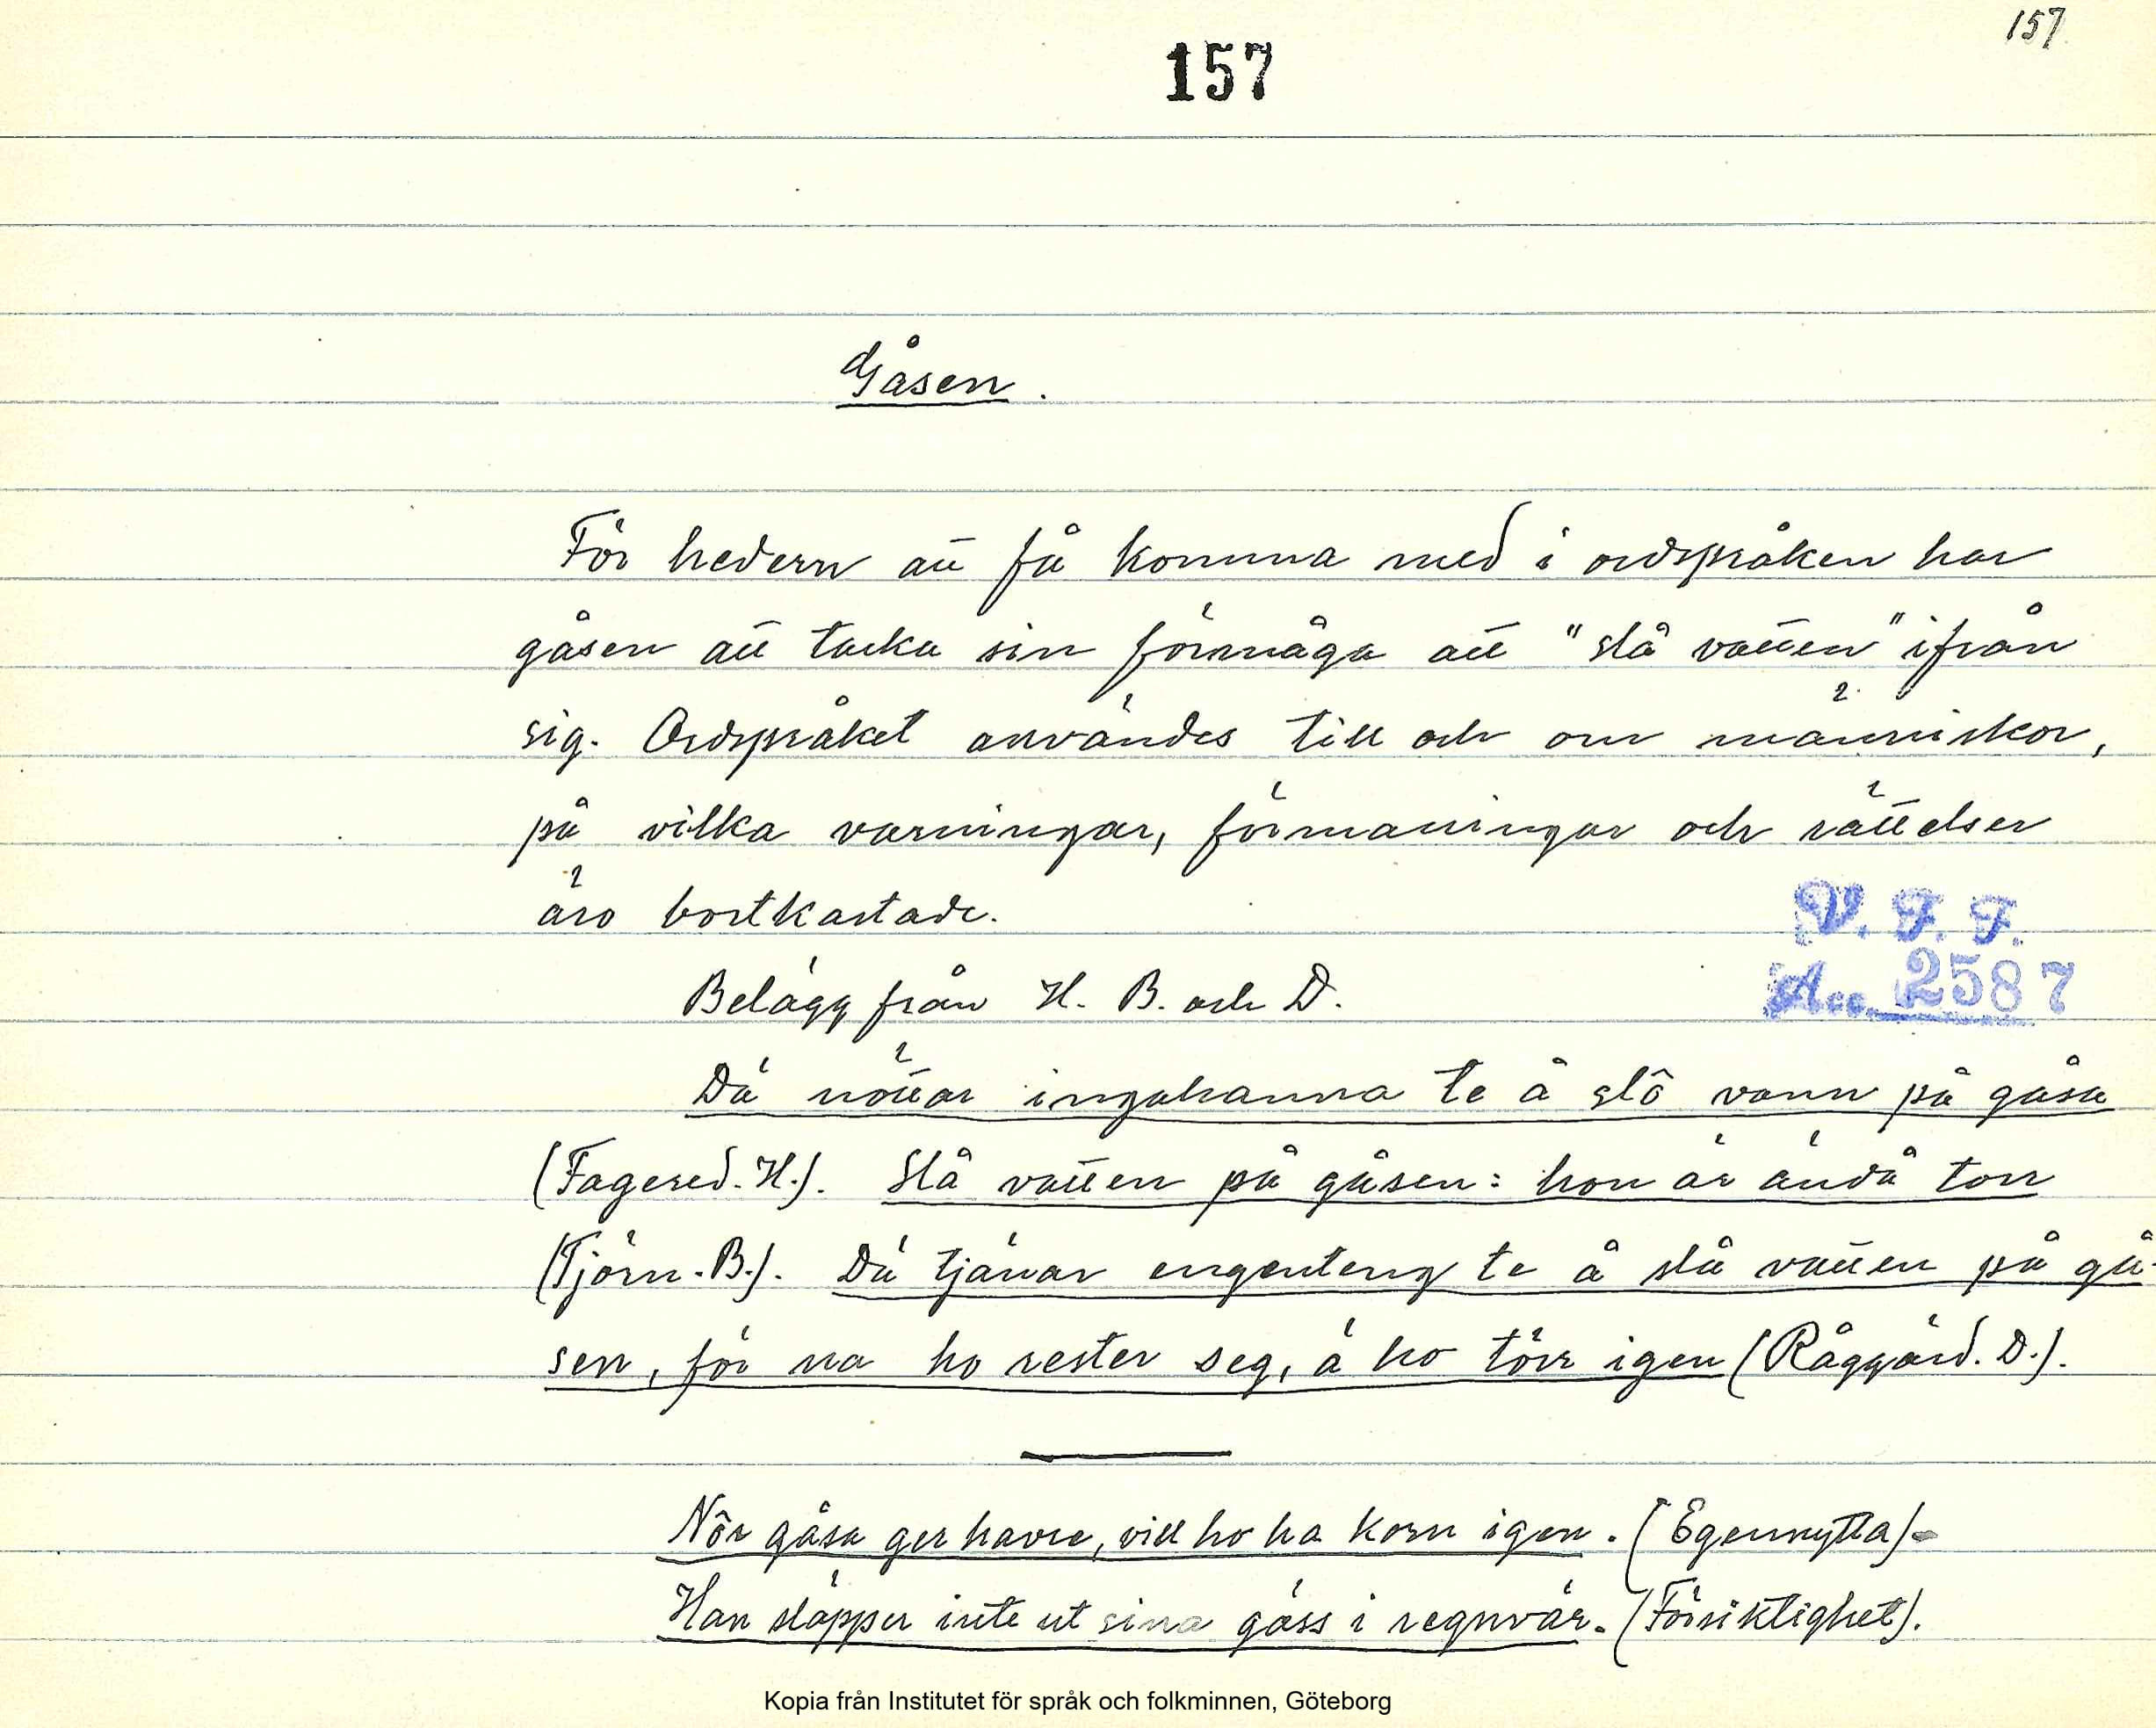 157
157
Gåsen.
För hedern att få komma med i ordspråken har
gåsen att tacka sin förmåga att "slå vatten" ifrån
sig. Ordspråket användes till och om människor,
på vilka varningar, förmaningar och rättelser
äro bortkastade.
V. F. F.
Belägg från H. B. och D.
Acc. 2587
Dä nöttar ingahanna te å slå vann på gåsa
(Fagered. H.). Slå vatten på gåsen: hon är ändå torr
(Tjörn. B.). Dä tjänar engenteng te å slå vatten på gå-
sen, för na ho rester seg, ä ho törr igen (Råggärd. D.).
Nôr gåsa ger havre, vill ho ha korn igen. (Egennytta)-
Han släpper inte ut sina gäss i regnvär. (Försiktighet).
Kopia från Institutet för språk och folkminnen, Göteborg